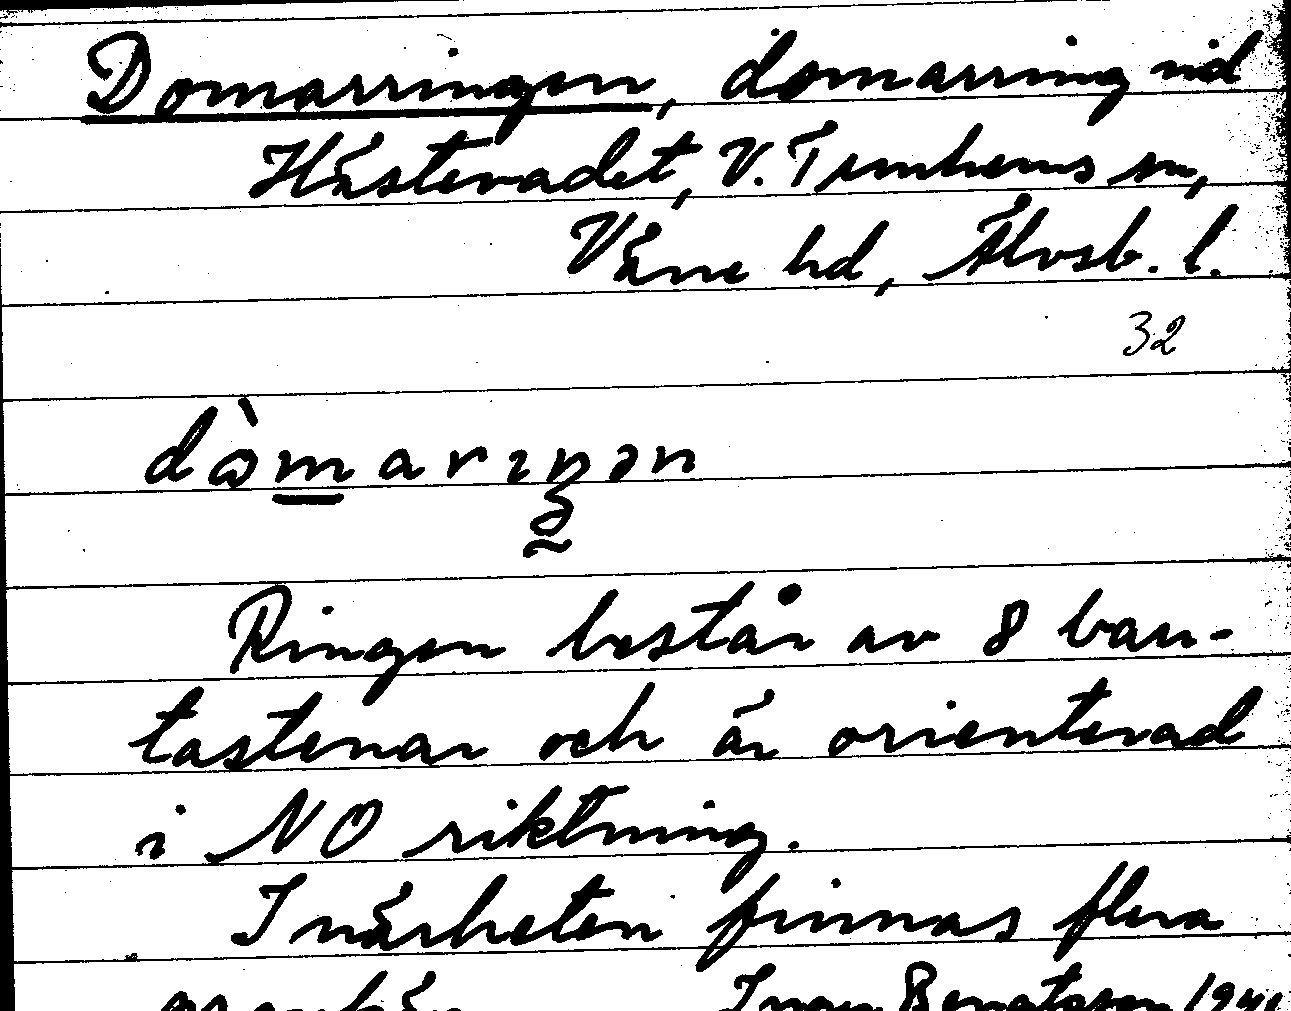 Domarringen, domarring vid
Hästevadet, V. Tunhems sn,
Väne hd, Älvsb. l.
32
dòmarıŋən
Ringen består av 8 bau-
tastenar och är orienterad
i NO riktning.
I närheten finnas flera
Bengtsson